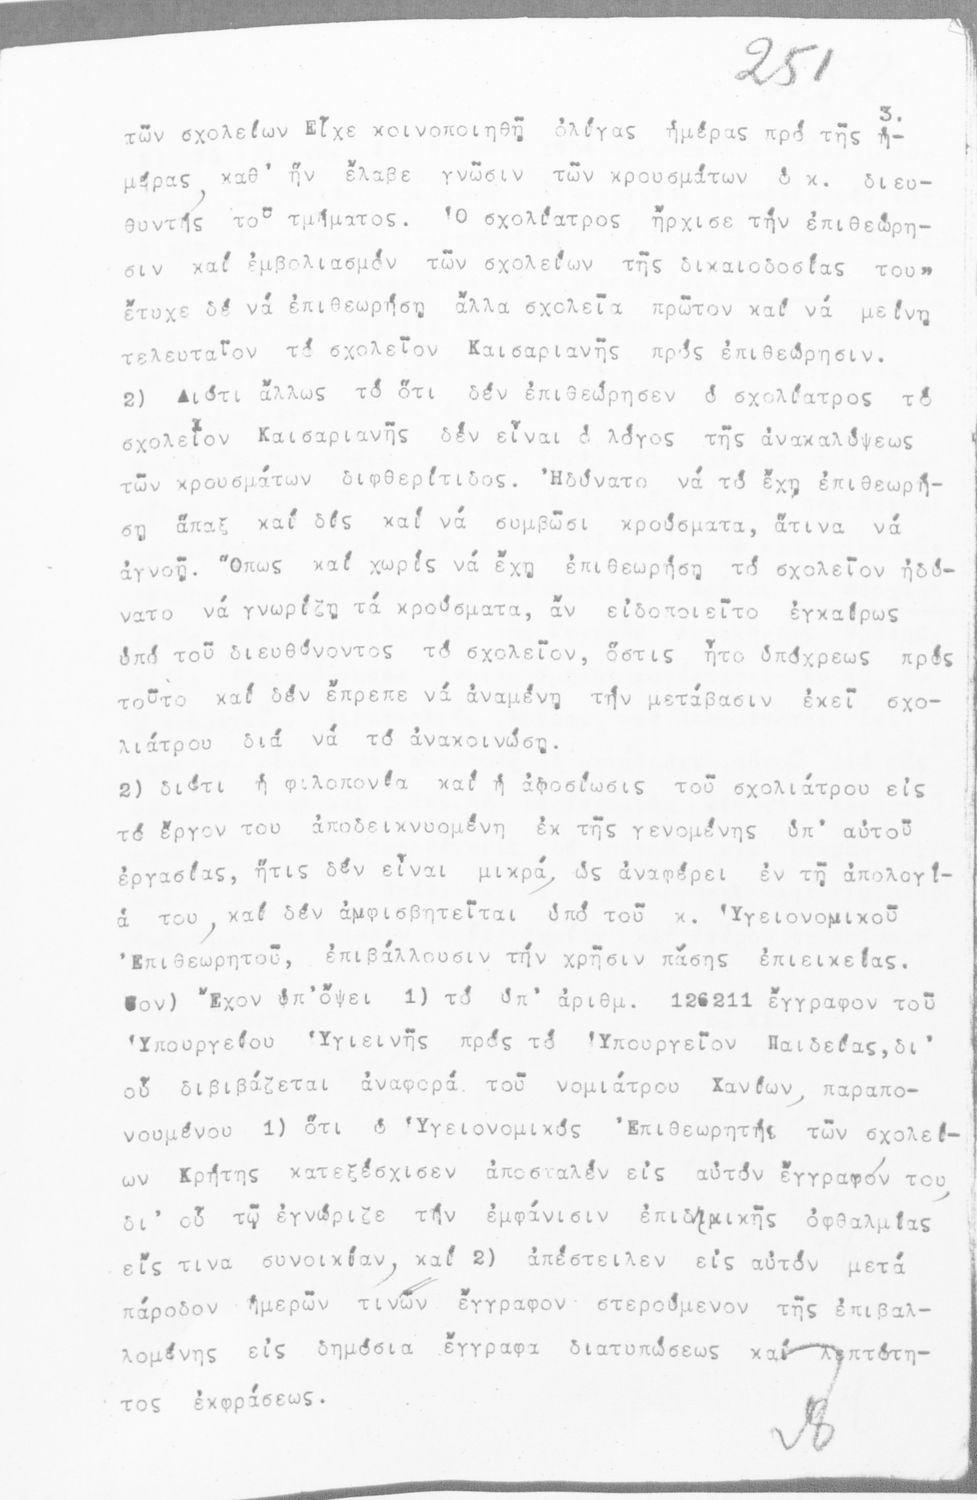 251
3.
τῶν σχολείων Εἶχε κοινοποιηθῆ ὀλίγας ἡμέρας πρό τῆς ἡ-
μέρας, καθ' ἥν ἔλαβε γνῶσιν τῶν κρουσμάτων ὁ κ. διευ-
θυντής τοῦ τμήματος. Ὁ σχολίατρος ἤρχισε τήν ἐπιθεώρη-
σιν καί ἐμβολιασμόν τῶν σχολείων τῆς δικαιοδοσίας του»
ἔτυχε δέ νά ἐπιθεωρήση ἄλλα σχολεῖα πρῶτον καί νά μείνη
τελευταῖον τό σχολεῖον Καισαριανῆς πρός ἐπιθεώρησιν.
2) Διότι ἄλλως τό ὅτι δέν ἐπιθεώρησεν ὁ σχολίατρος τό
σχολεῖον Καισαριανῆς δέν εἶναι ὁ λόγος τῆς ἀνακαλύψεως
τῶν κρουσμάτων διφθερίτιδος. Ἠδύνατο νά τό ἔχη ἐπιθεωρή-
ση ἅπαξ καί δίς καί νά συμβῶσι κρούσματα, ἅτινα νά
ἀγνοῆ. Ὅπως καί χωρίς νά ἔχη ἐπιθεωρήση τό σχολεῖον ἠδύ-
νατο νά γνωρίζη τά κρούσματα, ἄν εἰδοποιεῖτο ἐγκαίρως
ὑπό τοῦ διευθύνοντος τό σχολεῖον, ὅστις ἦτο ὑπόχρεως πρός
τοῦτο καί δέν ἔπρεπε νά ἀναμένη τήν μετάβασιν ἐκεῖ σχο-
λιάτρου διά νά τό ἀνακοινώση.
2) διότι ἡ φιλοπονία καί ἡ ἀφοσίωσις τοῦ σχολιάτρου εἰς
τό ἔργον του ἀποδεικνυομένη ἐκ τῆς γενομένης ὑπ' αὐτοῦ
ἐργασίας, ἥτις δέν εἶναι μικρά, ὡς ἀναφέρει ἐν τῆ ἀπολογί-
ᾳ του, καί δέν ἀμφισβητεῖται ὑπό τοῦ κ. Ὑγειονομικοῦ
Ἐπιθεωρητοῦ, ἐπιβάλλουσιν τήν χρῆσιν πάσης ἐπιεικείας.
ον) Ἔχον ὑπ'ὄψει 1) τό ὑπ' ἀριθμ. 126211 ἔγγραφον τοῦ
Ὑπουργείου Ὑγιεινῆς πρός τό Ὑπουργεῖον Παιδείας,δι'
οὗ διβιβάζεται ἀναφορά τοῦ νομιάτρου Χανίων, παραπο-
νουμένου 1) ὅτι ὁ Ὑγειονομικός Ἐπιθεωρητής τῶν σχολεί-
ων Κρήτης κατεξέσχισεν ἀποσταλέν εἰς αὐτόν ἔγγραφόν του,
δι' οὗ τῷ ἐγνώριζε τήν ἐμφάνισιν ἐπιδημικῆς ὀφθαλμίας
εἴς τινα συνοικίαν, καί 2) ἀπέστειλεν εἰς αὐτόν μετά
πάροδον ἡμερῶν τινῶν ἔγγραφον στερούμενον τῆς ἐπιβαλ-
λομένης εἰς δημόσια ἔγγραφα διατυπώσεως καί λεπτότη-
τος ἐκφράσεως.